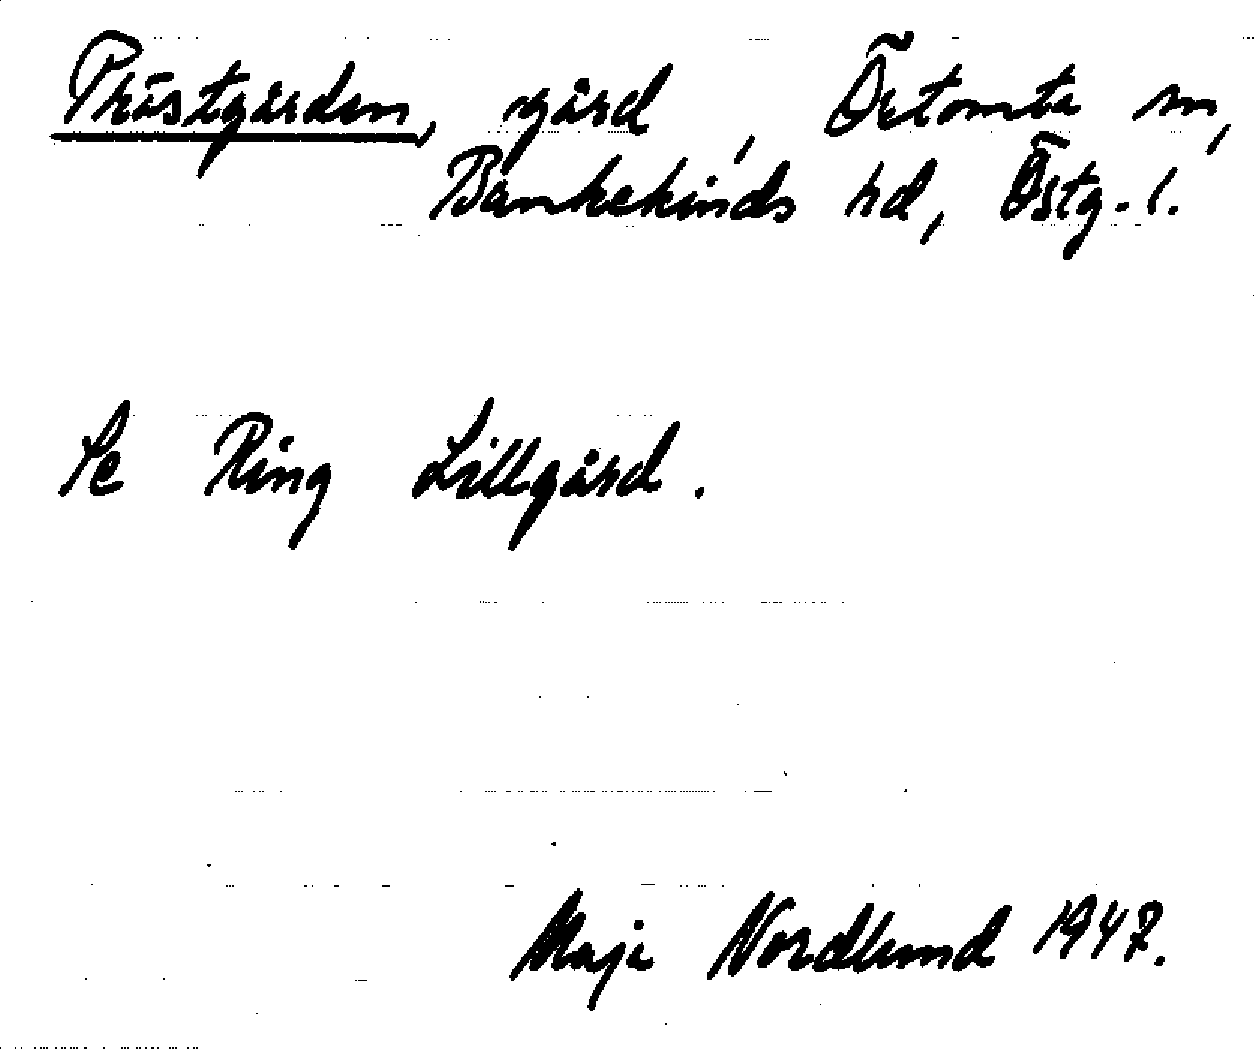 Prästgården, gård, Örtomta sn,
Bankekinds hd, Östg. l.
Se Ring Lillgård.
Maja Nordlund 1947.